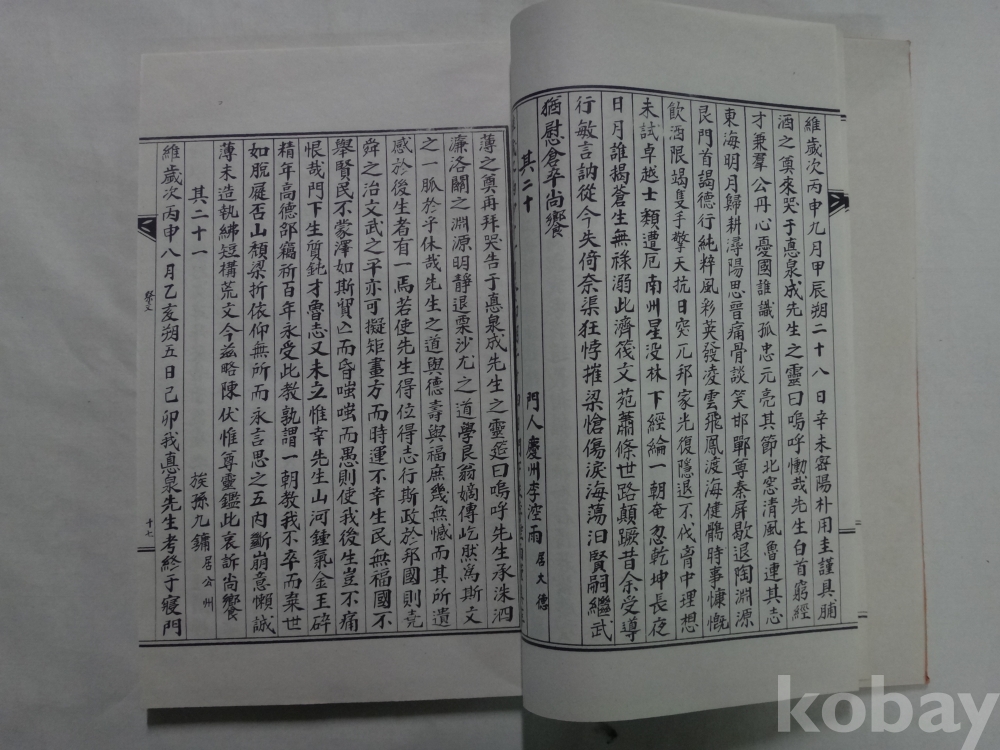 維歲次丙申九月甲辰朔二十八日辛未密陽朴用圭謹具脯
酒之奠來哭于悳泉成先生之靈曰嗚呼慟哉先生白首窮經
才兼羣公丹心憂國誰識孤忠元亮其節北窓清風魯連其志
東海明月歸耕潯陽思晉痛骨談笑邯鄲尊秦屏歇退陶淵源
艮門首謁德行純粹風彩英發凌雲飛鳳渡海健鶻時事慷慨
飲酒限竭隻手擎天抗日突兀邦家光復隱退不伐胷中理想
未試卓越士類遭厄南州星没林下經綸一朝奄忽乾坤長夜
日月誰揭蒼生無祿溺此濟筏文苑蕭條世路顛蹶昔余受導
行敏言訥從今失倚奈渠狂悖摧梁愴傷淚海蕩汩賢嗣繼武
猶慰倉卒尚饗
其二十 門人慶州李滢雨 居大德
薄之奠再拜哭告于悳泉成先生之靈筵曰嗚呼先生承洙泗
濂洛關之淵源明靜退栗沙尤之道學艮翁嫡傳屹然爲斯文
之一脈於乎休哉先生之道與德壽與福庶幾無憾而其所遺
感於後生者有一焉若使先生得位得志行斯政於邦國則堯
舜之治文武之平亦可擬矩畫方而時運不幸生民無福國不
舉賢民不蒙澤如斯貿亾而昏嗤嗤而愚則使我後生豈不痛
恨哉門下生質鈍才魯志又未立惟幸先生山河鍾氣金玉碎
精年高德邵竊祈百年永受此教孰謂一朝教我不卒而棄世
如脫屣否山頹梁折依仰無所而永言思之五內斷崩意懶誠
薄未造執紼短構荒文今玆略陳伏惟尊靈鑑此哀訴尚饗
其二十一 族孫九鏞 居公州
維歲次丙申八月乙亥朔五日己卯我悳泉先生考終于寢門
祭文
十七
kobay